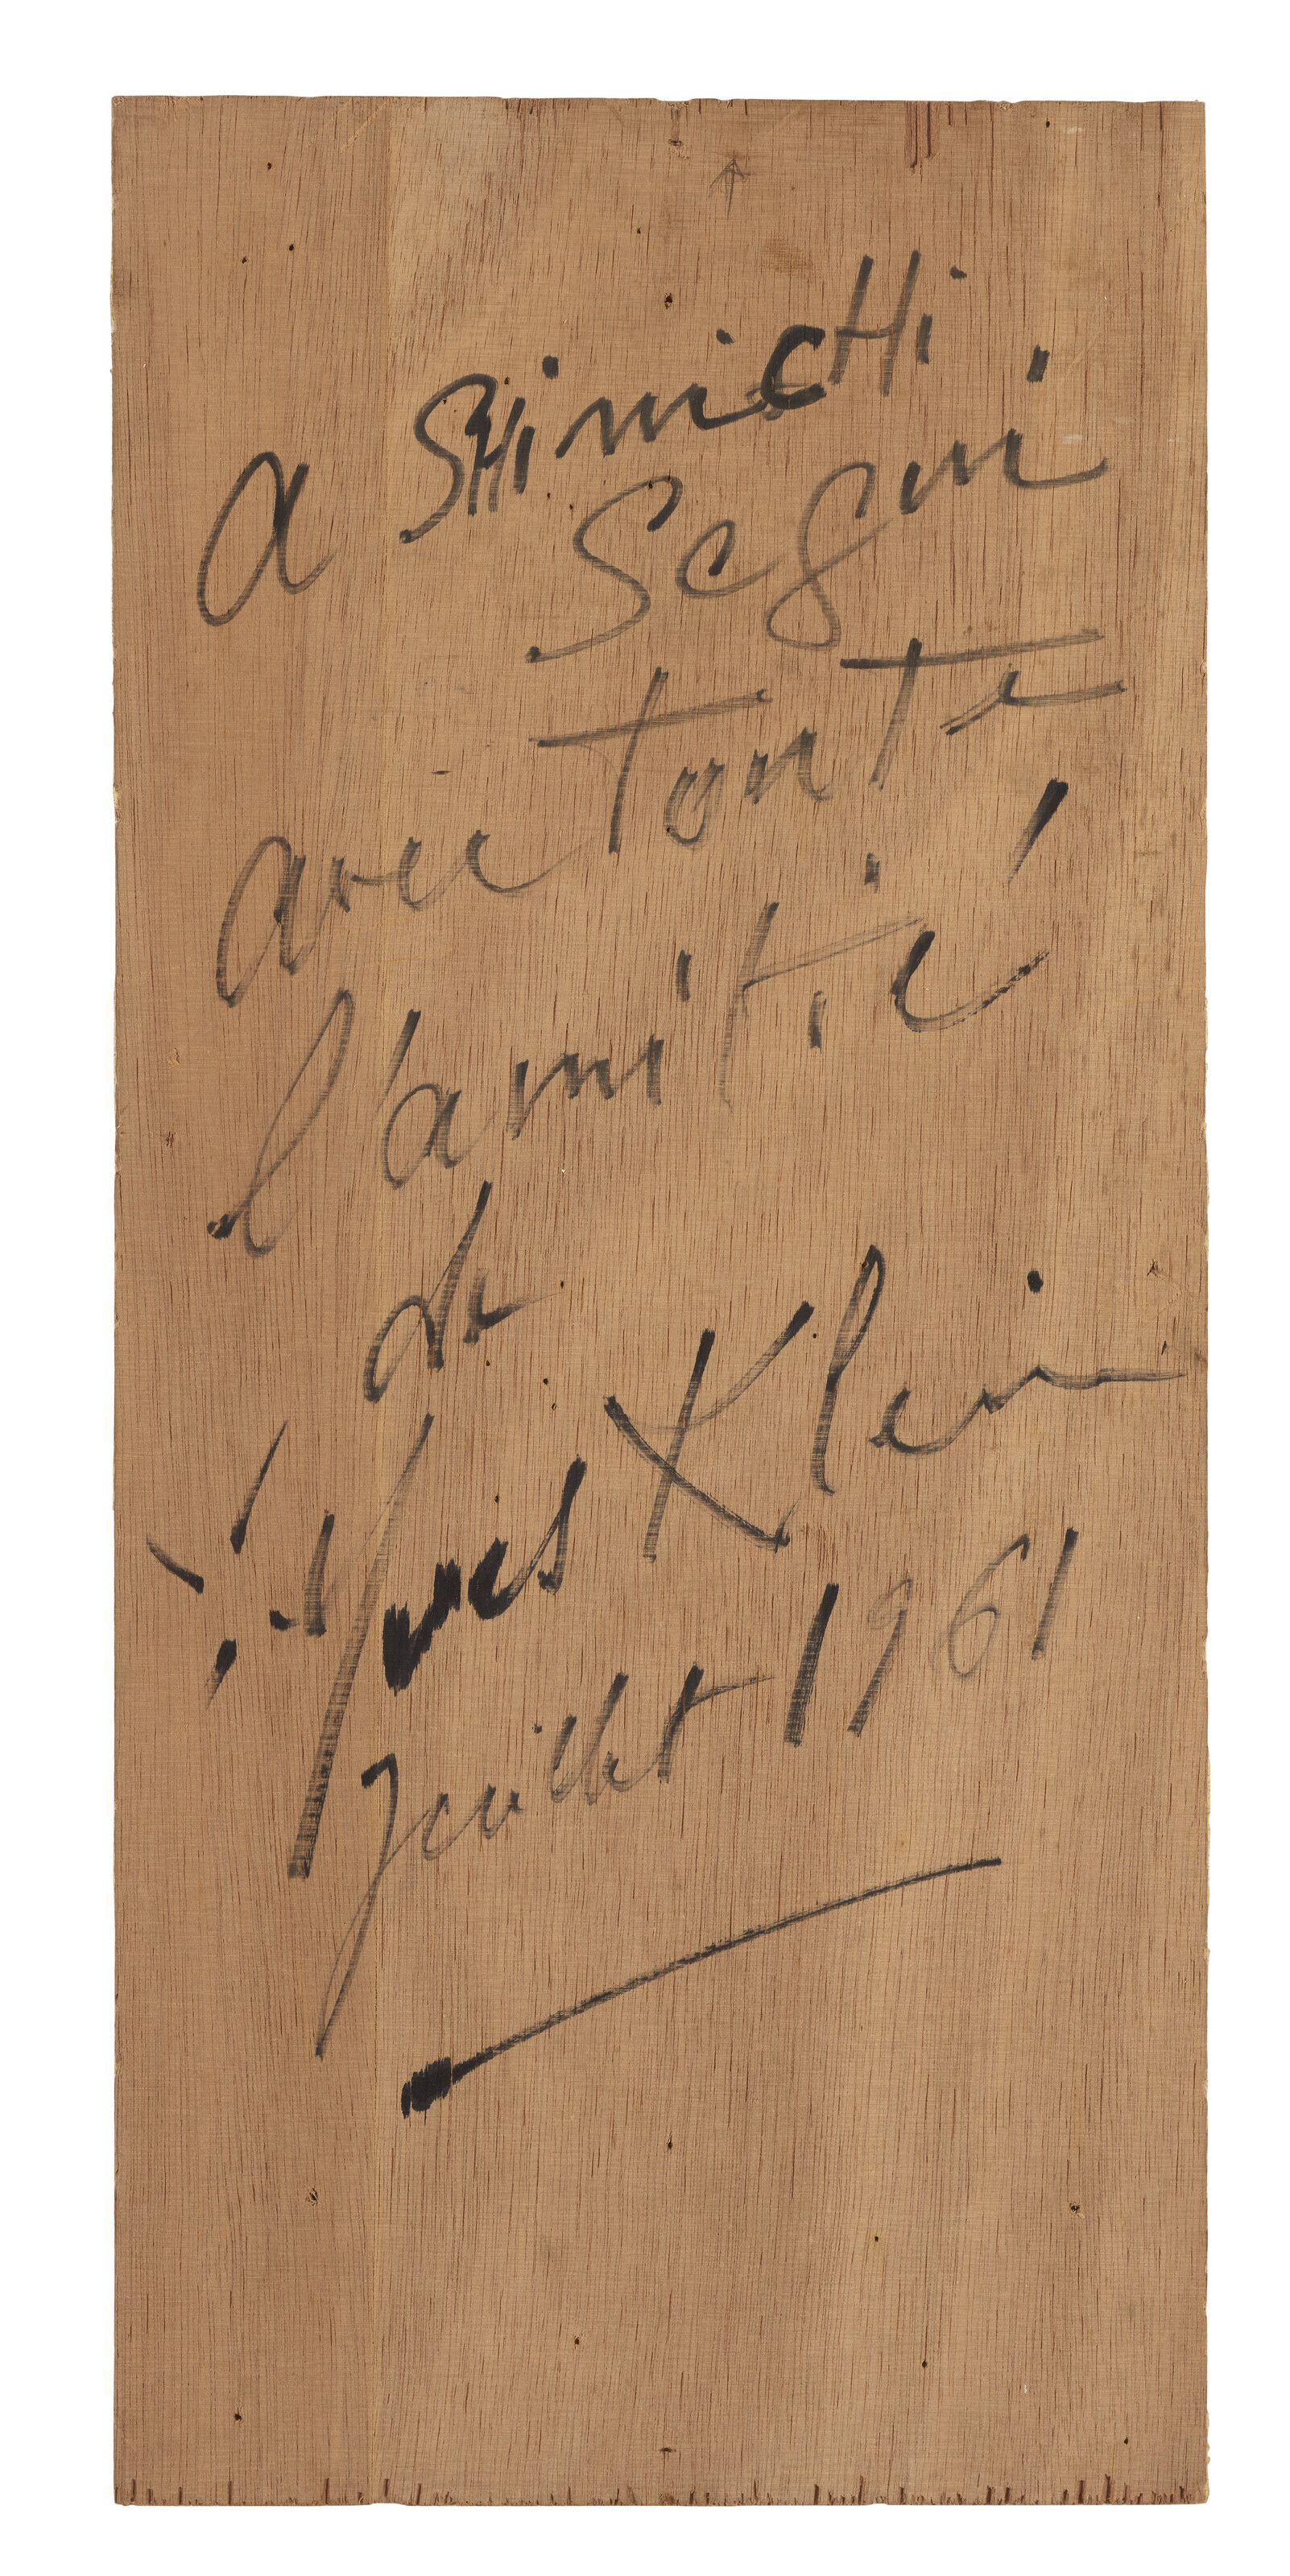 a SHinicHi
Segui
avec toute
l'amitié
de
Yves Klein
Juillet 1961